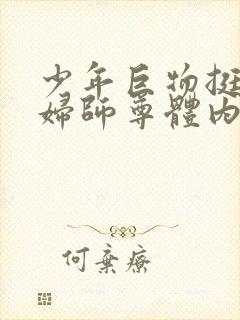 少年巨物挺
婦師尊體內
何棄療